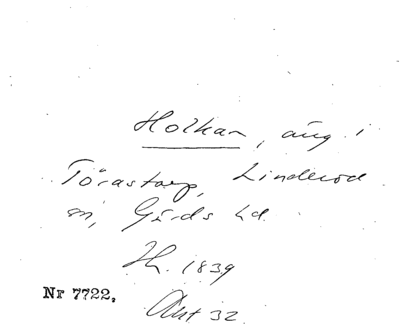 Holkan, äng i
Törastorp, Linderöd
sn, Gärds hd.
Jh. 1839
Nr 7722.
Akt 32